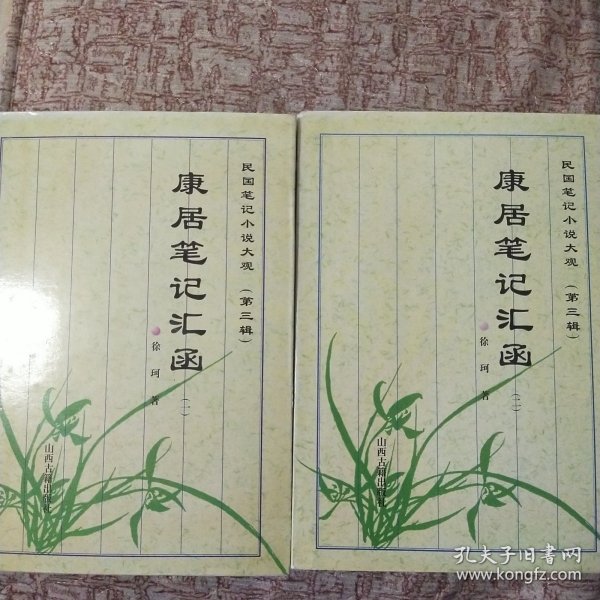 民国笔记小说大观（第三辑）
康居笔记汇函（一）
徐珂 著
山西古籍出版社
民国笔记小说大观（第三辑）
康居笔记汇函（二）
徐珂 著
山西古籍出版社
孔夫子旧书网
www.kongfz.com